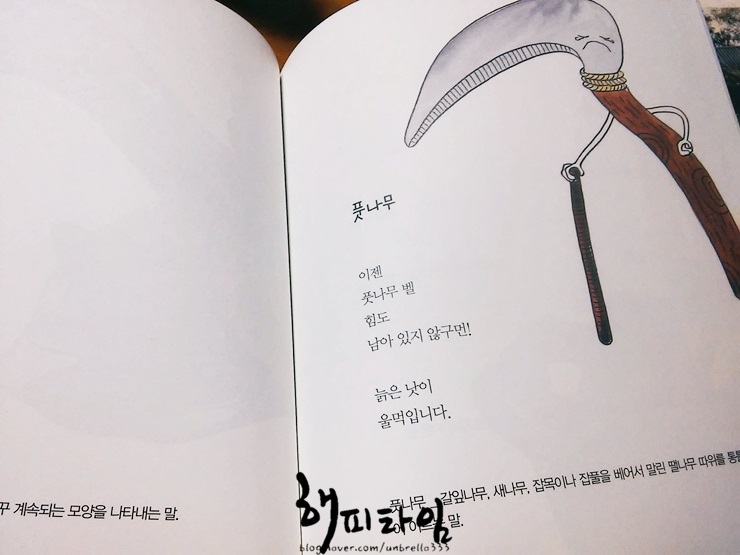 꾸 계속되는 모양을 나타내는 말.
풋나무
이젠
풋나무 벨
힘도
남아 있지 않구먼!
늙은 낫이
울먹입니다.
풋나무 갈잎나무, 새나무, 잡목이나 잡풀을 베어서 말린 땔나무 따위를 통틀
말.
해피타임
blog.naver.com/unbrella333